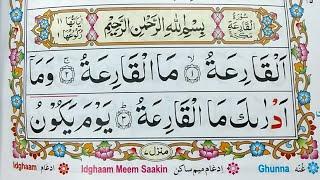 سُورَةُ الْقَارِعَةِ مَكِّيَّةٌ
بِسْمِ اللّٰهِ الرَّحْمٰنِ الرَّحِيْمِ
اَلْقَارِعَةُ ۙ﴿۱﴾ مَا الْقَارِعَةُ ۚ﴿۲﴾ وَمَاۤ
اَدْرٰىكَ مَا الْقَارِعَةُ ؕ﴿۳﴾ يَوْمَ يَكُوْنُ
منزل ۷
Idghaam ادغام Idghaam Meem Saakin ادغام ميم ساکن Ghunna غنّه